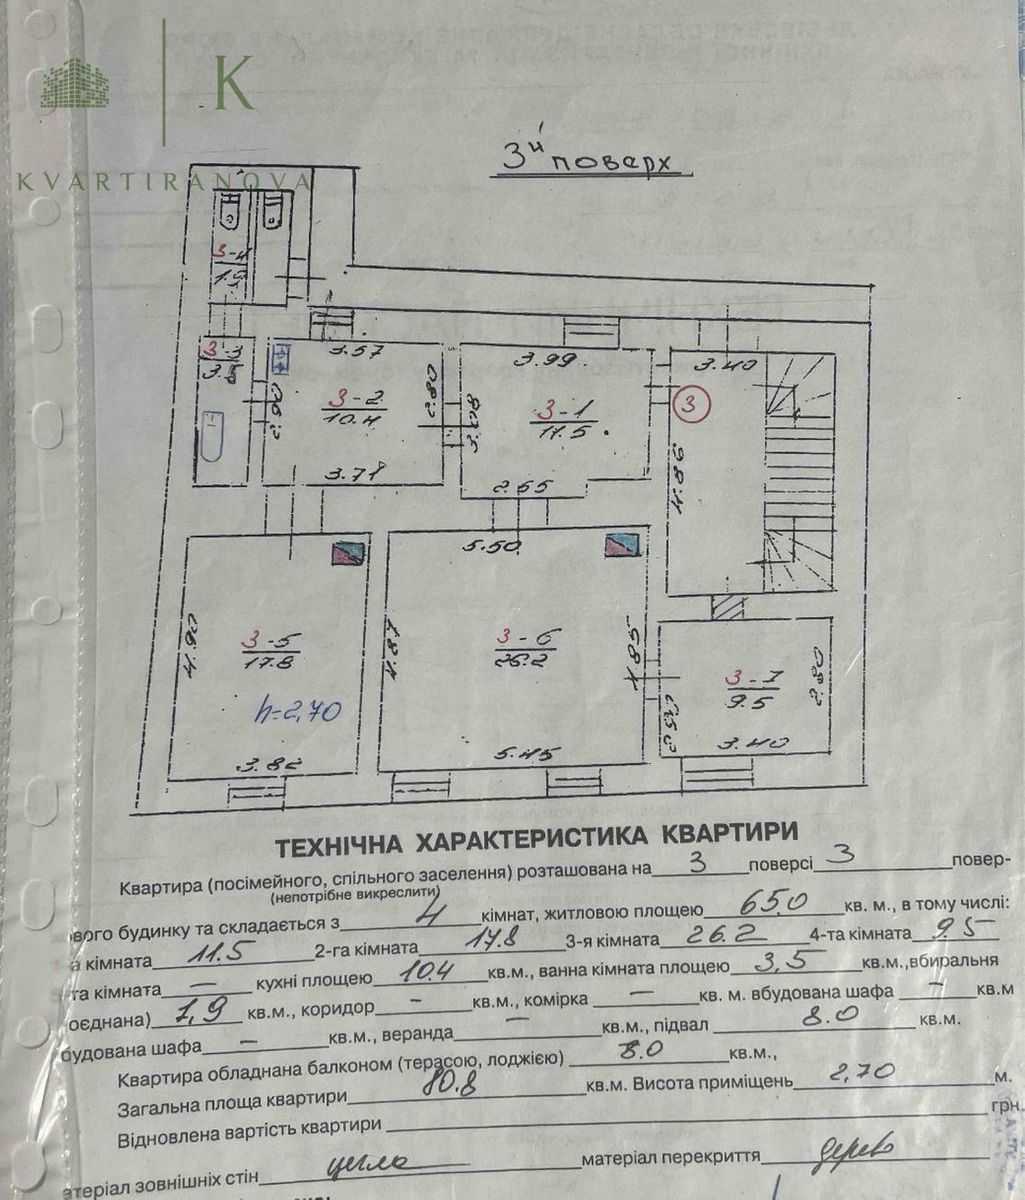 K
KVARTIRANOVA
3й поверх
3-4
1.9
3-3
3.5
3.57
3.99
3.40
3-2
10.4
2.80
3-1
11.5
3
2.90
3.28
4.86
3.71
2.65
5.50
4.90
3-5
17.8
4.81
3-6
26.2
4.85
3-7
9.5
2.80
h=2,70
3.82
5.45
3.40
ТЕХНІЧНА ХАРАКТЕРИСТИКА КВАРТИРИ
Квартира (посімейного, спільного заселення) розташована на 3 поверсі 3 повер-
(непотрібне викреслити)
ового будинку та складається з 4 кімнат, житловою площею 65,0 кв. м., в тому числі:
а кімната 11.5 2-га кімната 17.8 3-я кімната 26.2 4-та кімната 9.5
та кімната — кухні площею 10.4 кв.м., ванна кімната площею 3,5 кв.м.,вбиральня
оєднана) 1,9 кв.м., коридор — кв.м., комірка — кв. м. вбудована шафа — кв.м
будована шафа — кв.м., веранда — кв.м., підвал 8.0 кв.м.
Квартира обладнана балконом (терасою, лоджією) 8.0 кв.м.,
Загальна площа квартири 80.8 кв.м. Висота приміщень 2,70 м.
Відновлена вартість квартири грн.
атеріал зовнішніх стін цегла матеріал перекриття дерево